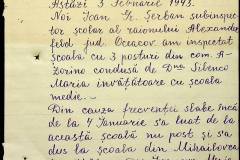 Astăzi 3 Februarie 1943.
Noi Ioan Gh. Șerban subinspec
tor școlar al raionului Alexandr
feld jud. Oceacov am inspectat
școala cu 3 posturi din com. A-
Zorino condusă de Dna Silenco
Maria învățătoare cu școala
medie.-
Din cauza frecvenței slabe încă
de la 4 Ianuarie s'a luat de la
această școală un post și s'a
dus la școala din Mihailovca